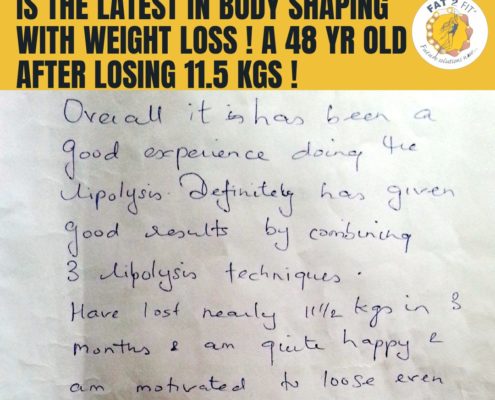 IS THE LATEST IN BODY SHAPING
WITH WEIGHT LOSS ! A 48 YR OLD
AFTER LOSING 11.5 KGS !
FAT 2 FIT
Overall it is has been a
good experience doing the
lipolysis. Definitely has given
good results by combining
3 lipolysis techniques.
Have lost nearly 11½ kgs in 3
months & am quite happy &
am motivated to loose even